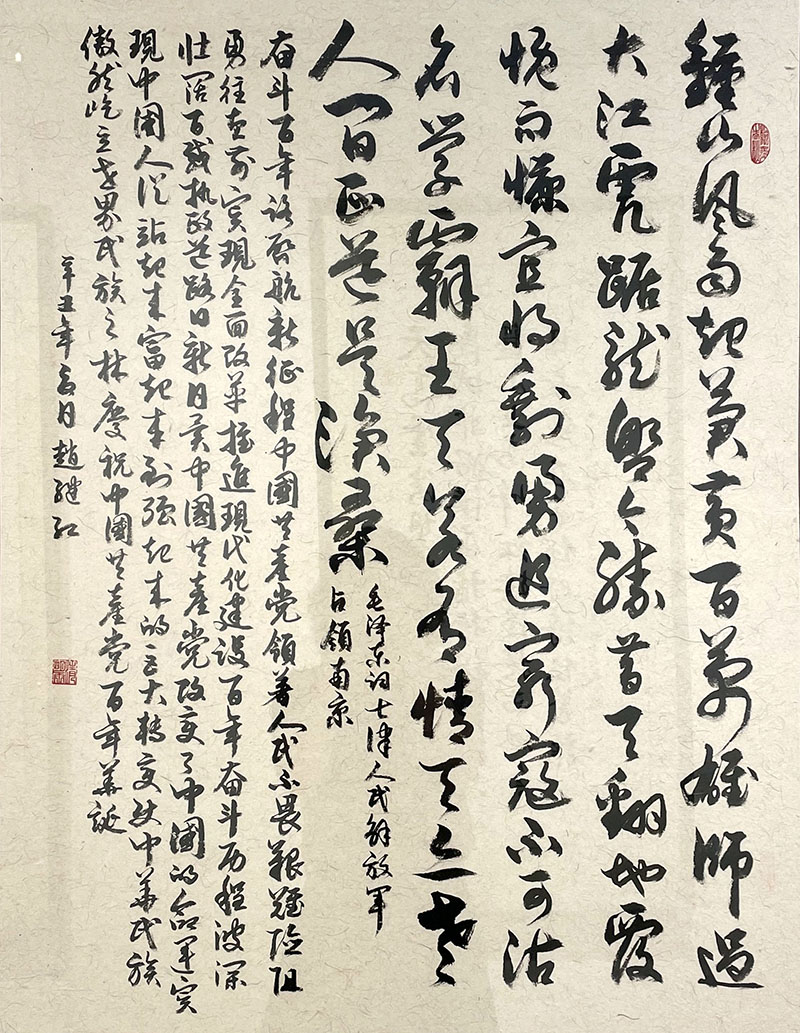 鍾山風雨起蒼黄百萬雄師過
大江虎踞龍盤今勝昔天翻地覆
慨而慷宜將剩勇追窮寇不可沽
名學霸王天若有情天亦老
人間正道是滄桑
毛泽东词七律人民解放军
占領南京
奋斗百年路啓航新征程中國共産党領著人民不畏艱難險阻
勇往直前实現全面改革推進現代化建設百年奋斗历程波瀾
壮阔百歲执政道路日新日異中國共産党改变了中國的命運实
現中國人從站起来富起来到强起来的巨大轉变使中華民族
傲然屹立世界民族之林慶祝中國共産党百年華誕
辛丑年夏月趙继红